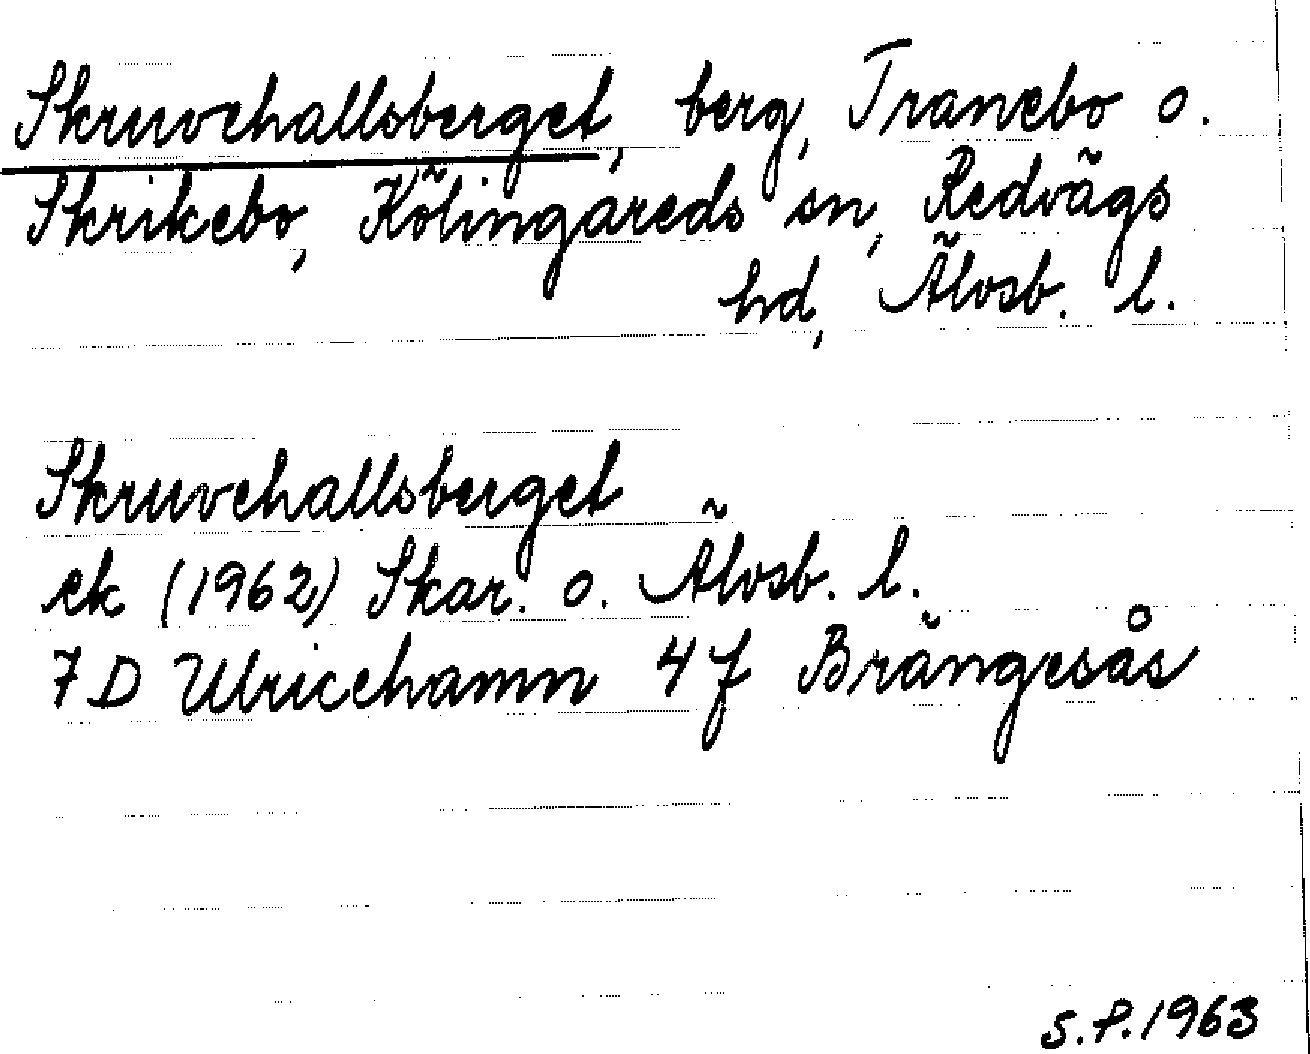 Skruvehallsberget, berg, Tranebo o.
Skrikebo, Kölingareds sn, Redvägs
hd, Älvsb. l.
Skruvehallsberget
ek (1962) Skar. o. Älvsb. l.
7 D Ulricehamn 4 f Brängesås
S.P. 1963